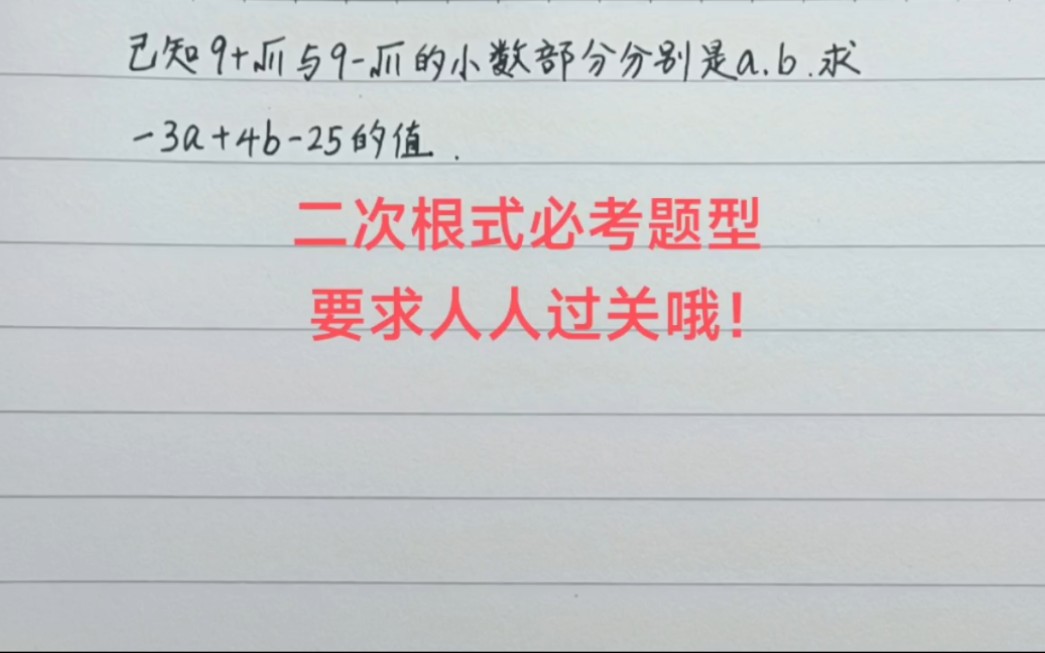 已知9+√11与9-√11的小数部分分别是a.b.求
-3a+4b-25的值.
二次根式必考题型
要求人人过关哦！